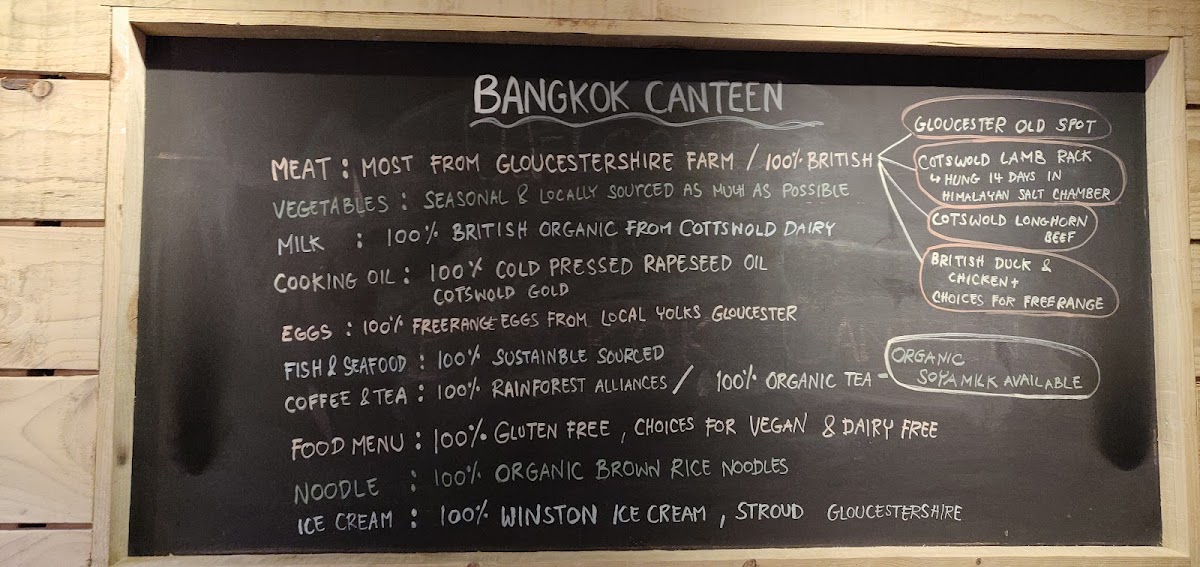 BANGKOK CANTEEN
MEAT : MOST FROM GLOUCESTERSHIRE FARM / 100% BRITISH
GLOUCESTER OLD SPOT
COTSWOLD LAMB RACK
↳ HUNG 14 DAYS IN
HIMALAYAN SALT CHAMBER
COTSWOLD LONGHORN
BEEF
BRITISH DUCK &
CHICKEN +
CHOICES FOR FREERANGE
VEGETABLES : SEASONAL & LOCALLY SOURCED AS MUCH AS POSSIBLE
MILK : 100% BRITISH ORGANIC FROM COTTSWOLD DAIRY
COOKING OIL : 100% COLD PRESSED RAPESEED OIL
COTSWOLD GOLD
EGGS : 100% FREERANGE EGGS FROM LOCAL YOLKS GLOUCESTER
FISH & SEAFOOD : 100% SUSTAINBLE SOURCED
COFFEE & TEA : 100% RAINFOREST ALLIANCES / 100% ORGANIC TEA -
ORGANIC
SOYA MILK AVAILABLE
FOOD MENU : 100% GLUTEN FREE , CHOICES FOR VEGAN & DAIRY FREE
NOODLE : 100% ORGANIC BROWN RICE NOODLES
ICE CREAM : 100% WINSTON ICE CREAM , STROUD GLOUCESTERSHIRE